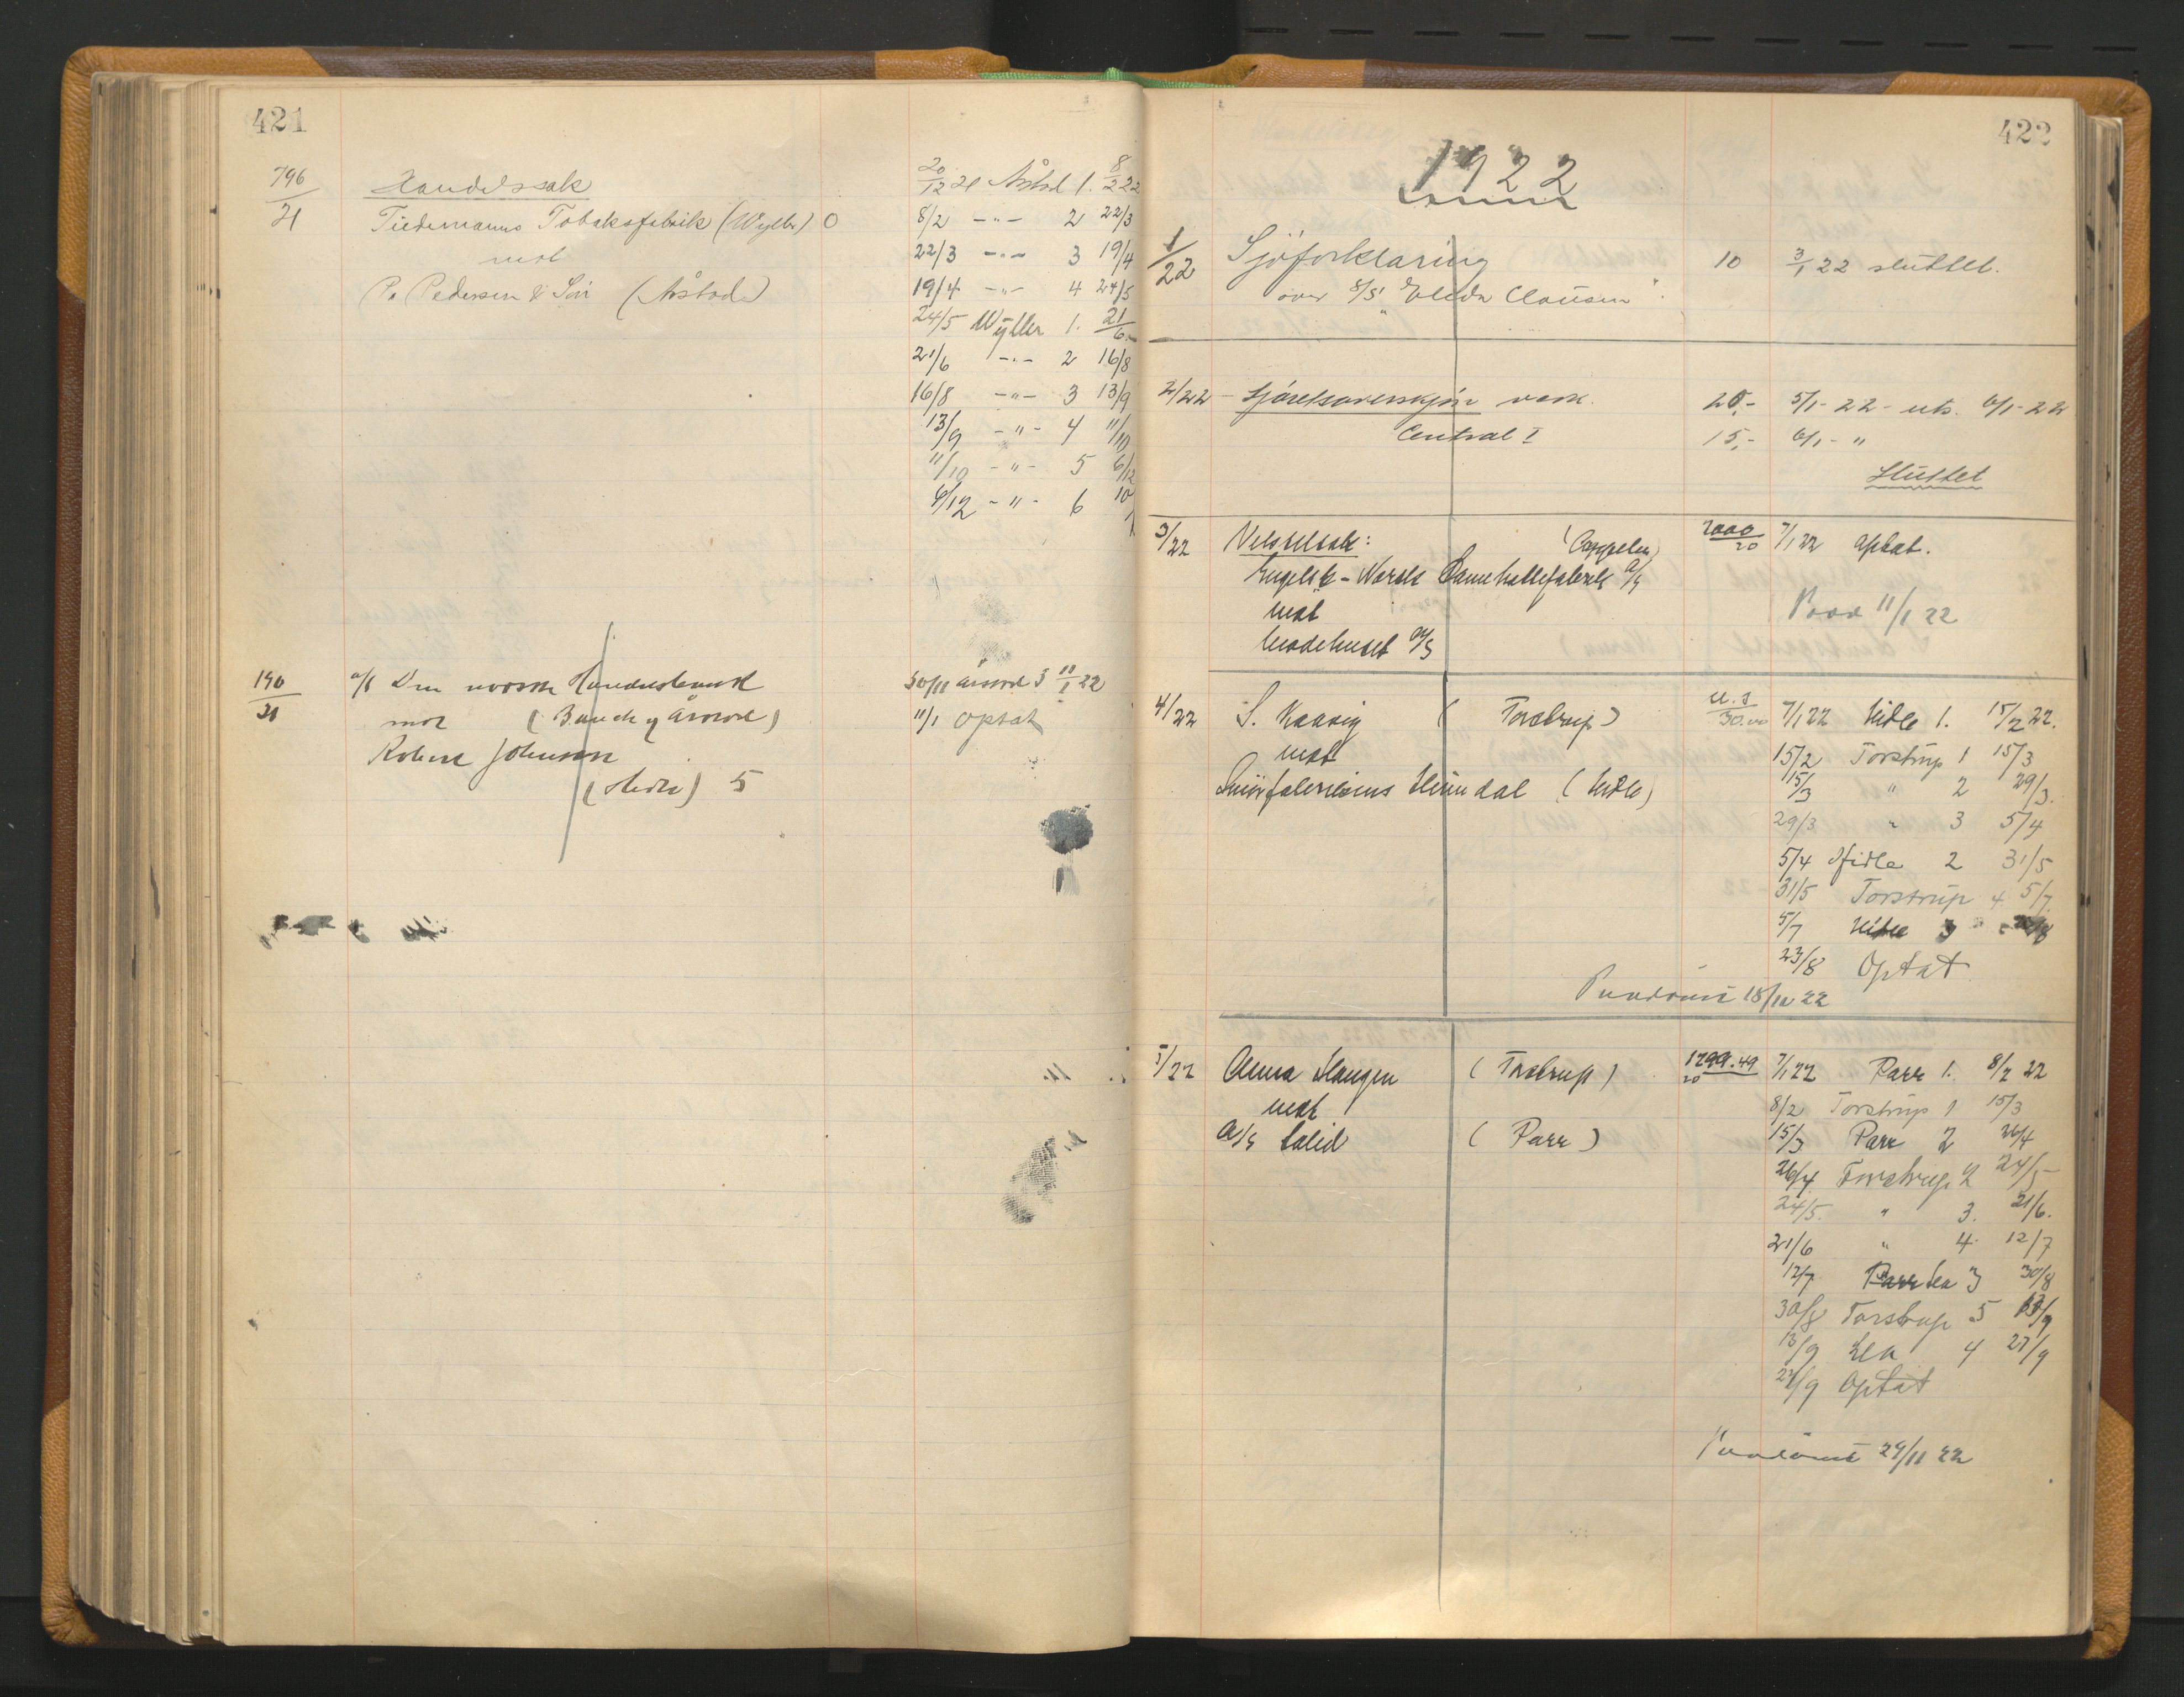 421
796/21 Handelssak 20/12 21 Årstad 1. 8/2 22
Tiedemanns Tobaksfabrik (Wyller) 0 8/2 -"- 2 22/3
mot 22/3 -"- 3 19/4
P. Pedersen & Søn (Årstad) 19/4 -"- 4 24/5
24/5 Wyller 1. 21/6
21/6 -"- 2 16/8
16/8 -"- 3 13/9
13/9 -"- 4 11/10
11/10 -"- 5 6/12
6/12 -"- 6 10/1
190/21 a/s Den norske Handelsbank 30/11 Årstad 3 11/1 22
mot (Bauck og Årstad) 11/1 optat
Robert Johnson
(Hidle) 5
422
1922
1/22 Sjöforklaring 10 3/1 22 sluttet.
over S/S "Elida Clausen"
2/22 - Sjøretsoverskjøn vask. 20,- 5/1-22- uts. 6/1-22
Central I 15,- 6/1 - "
Sluttet
3/22 Vekselsak: (Cappelen) 2000/20 7/1 22 Optat.
Engelsk-Norsk Damehattefabrik A/S
mot Paad 11/1 22
Modehuset A/S
4/22 S. Kaarig (Torstrup) U.S 30.00 7/1 22 Hidle 1. 15/2 22.
mot 15/2 Torstrup 1 15/3
Smörfabrikens Heimdal (Hidle) 15/3 " 2 29/3.
29/3 " 3 5/4
5/4 Hidle 2 31/5
31/5 Torstrup 4 5/7.
5/7 Hidle 3
23/8 Optat
Paadömt 18/10 22
5/22 Anna Haugen (Torstrup) 1299.49/20 7/1 22 Parr 1. 8/2 22
mot 8/2 Torstrup 1 15/3
A/S Solid (Parr) 15/3 Parr 2 26/4
26/4 Torstrup 2 24/5
24/5. " 3. 21/6.
21/6 " 4. 12/7
12/7 Lea 3 30/8
30/8 Torstrup 5 13/9
13/9 Lea 4 27/9
27/9 Optat
Paadömt 24/11 22